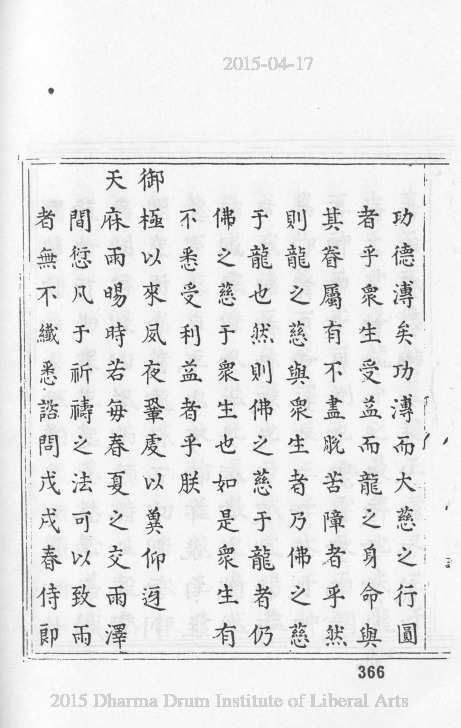 2015-04-17
功德溥矣功溥而大慈之行圓
者乎衆生受益而龍之身命與
其眷屬有不盡脫苦障者乎然
則龍之慈與衆生者乃佛之慈
于龍也然則佛之慈于龍者仍
佛之慈于衆生也如是衆生有
不悉受利益者乎朕
御極以來夙夜鞏虔以冀仰迓
天庥雨暘時若每春夏之交雨澤
間愆凡于祈禱之法可以致雨
者無不纖悉諮問戊戌春侍郎
366
2015 Dharma Drum Institute of Liberal Arts